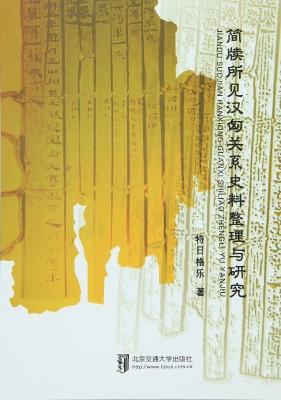 简牍所见汉匈关系史料整理与研究
JIANDU SUOJIAN HANXIONG GUANXI SHILIAO ZHENGLI YU YANJIU
特日格乐 著
北京交通大学出版社
http://www.bjtup.com.cn